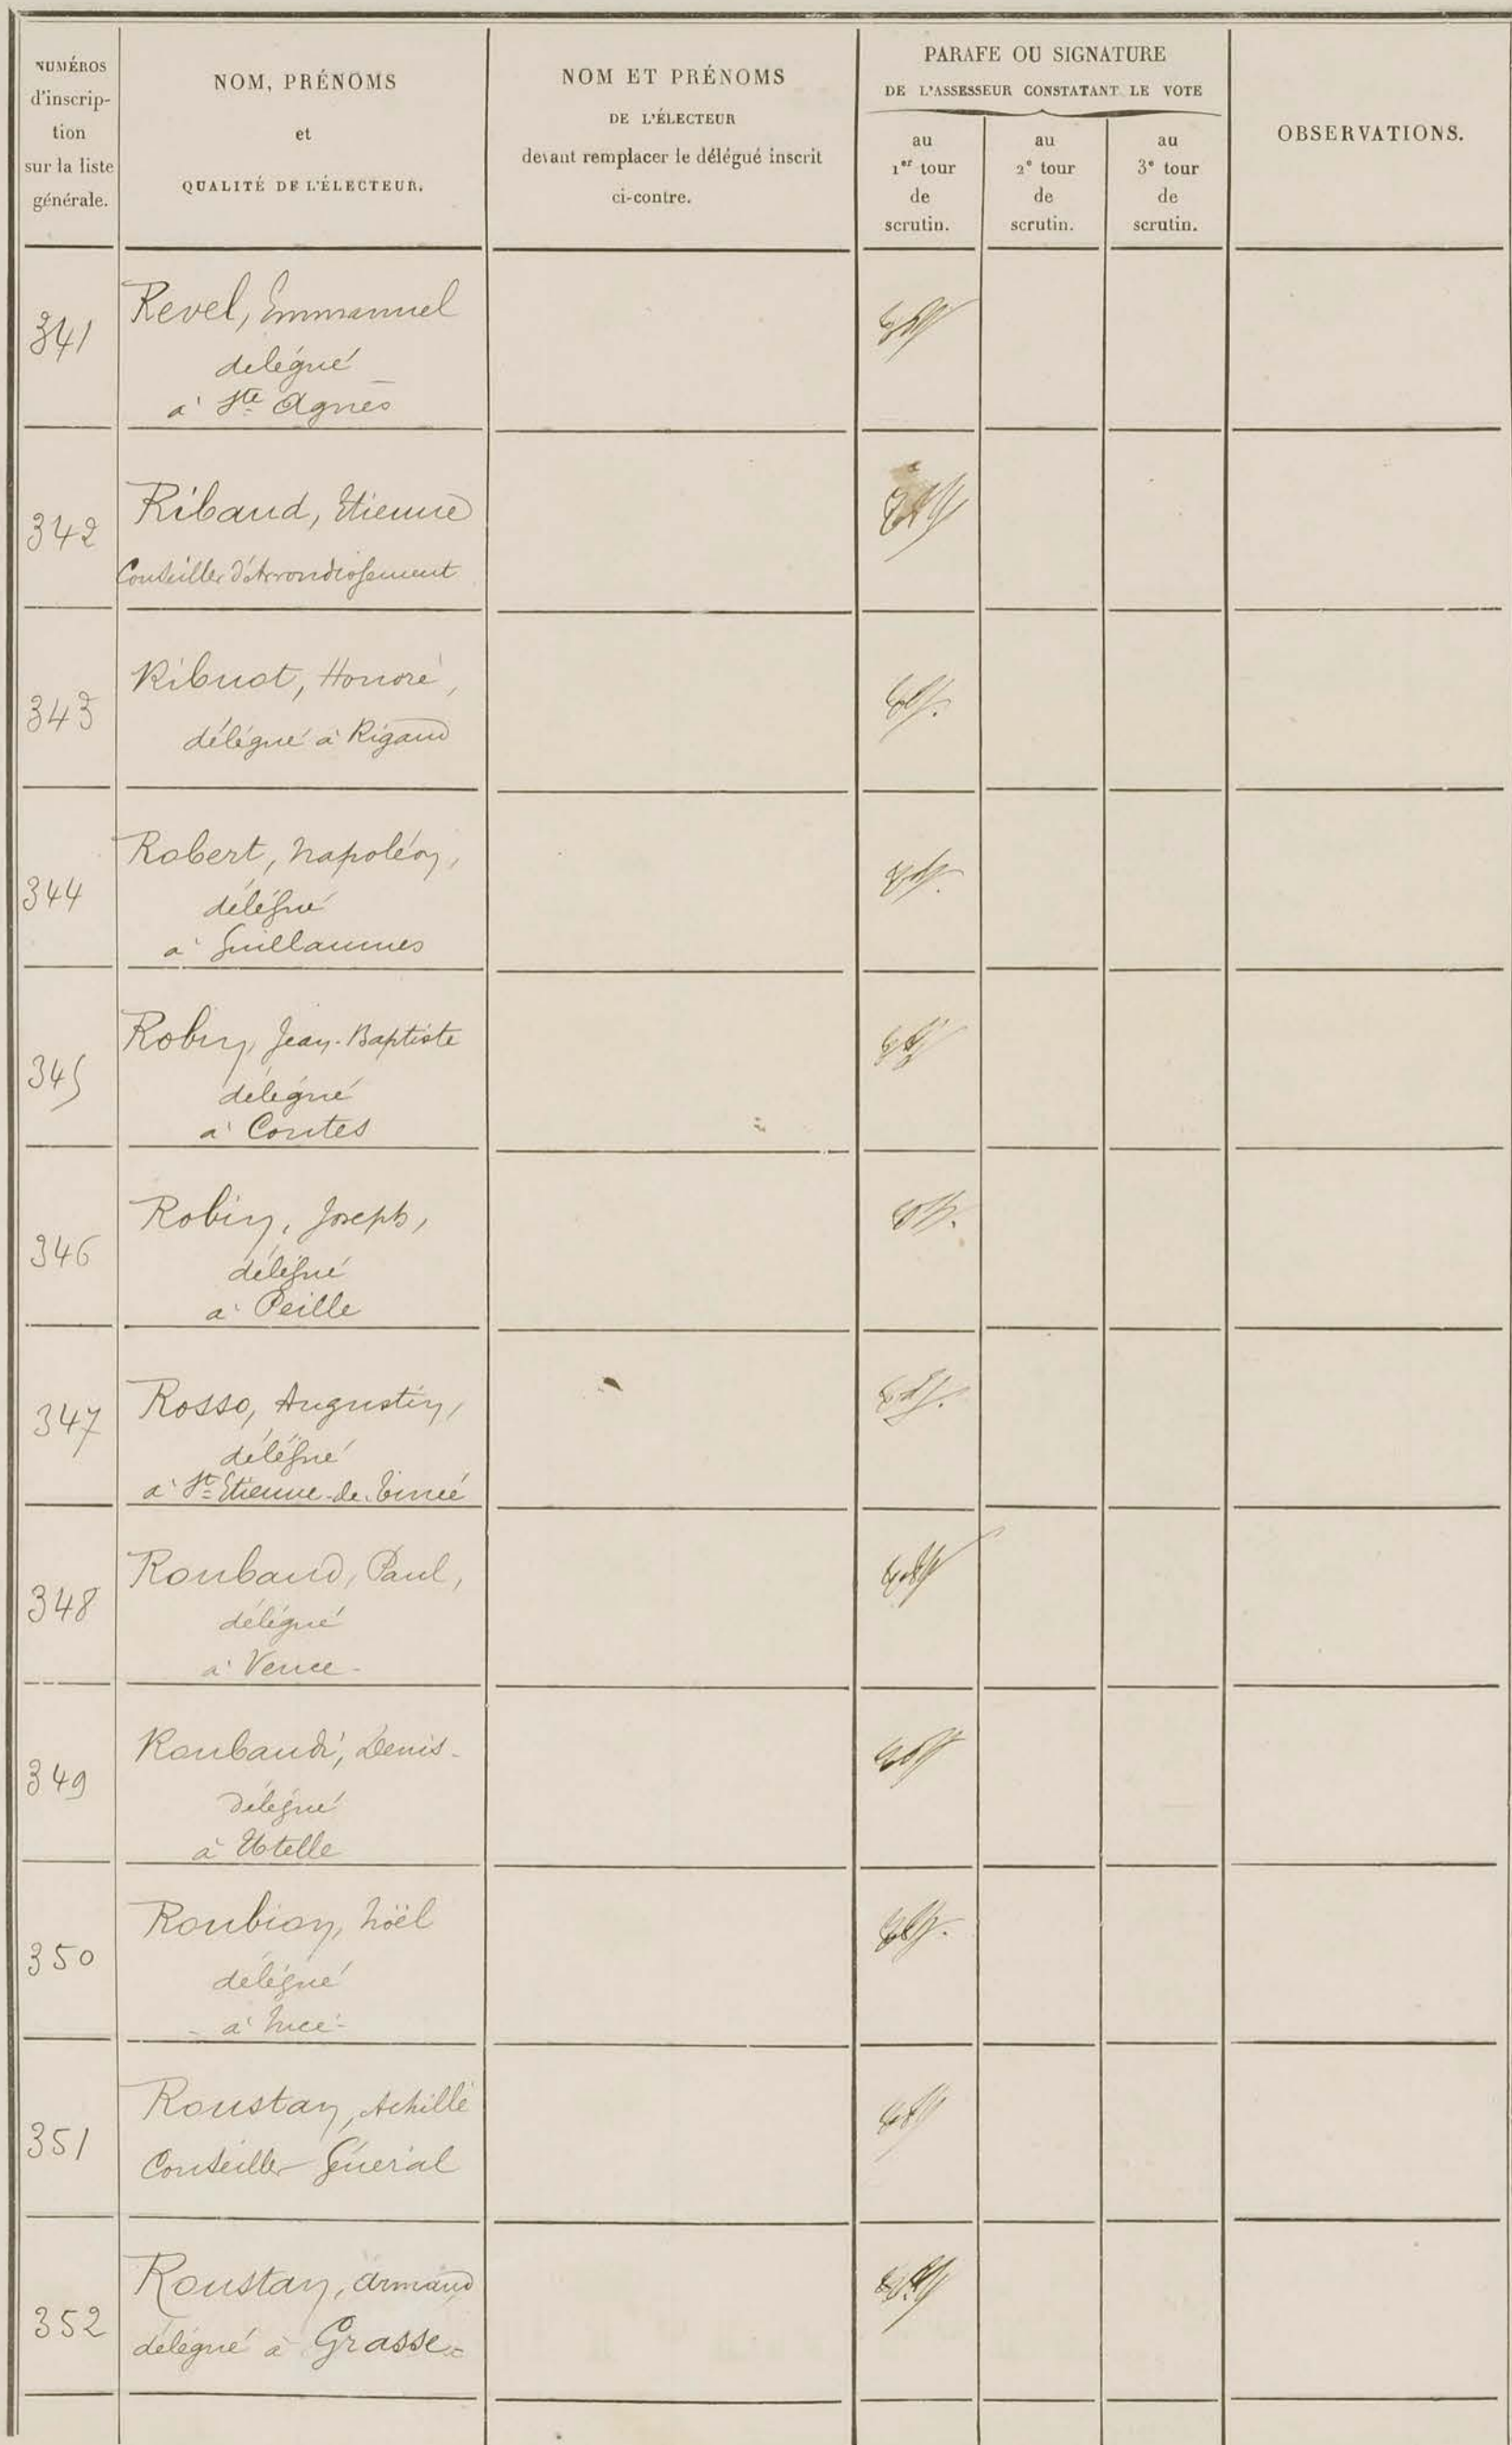 NUMÉROS
d'inscrip-
tion
sur la liste
générale.
NOM, PRÉNOMS
et
QUALITÉ DE L'ÉLECTEUR.
NOM ET PRÉNOMS
DE L'ÉLECTEUR
devant remplacer le délégué inscrit
ci-contre.
PARAFE OU SIGNATURE
DE L'ASSESSEUR CONSTATANT LE VOTE
au
1er tour
de
scrutin.
au
2e tour
de
scrutin.
au
3e tour
de
scrutin.
OBSERVATIONS.
341
Revel, Emmanuel
delégué
à Ste Agnès
342
Ribaud, Etienne
Conseiller d'Arrondissement
343
Ribuot, Honoré,
délégué à Rigaud
344
Robert, Napoléon,
délégué
à Guillaumes
345
Robin, Jean-Baptiste
délégué
à Contes
346
Robin, Joseph,
délégué
à Peille
347
Rosso, Augustin,
délégué
à St Etienne-de-Tinée
348
Roubaud, Paul,
délégué
à Vence-
349
Roubaudi, Denis-
Délégué
à Utelle
350
Roubion, Noël
délégué
- à Nice-
351
Roustan, Achille
Conseiller Général
352
Roustan, Armand
délégué à Grasse-